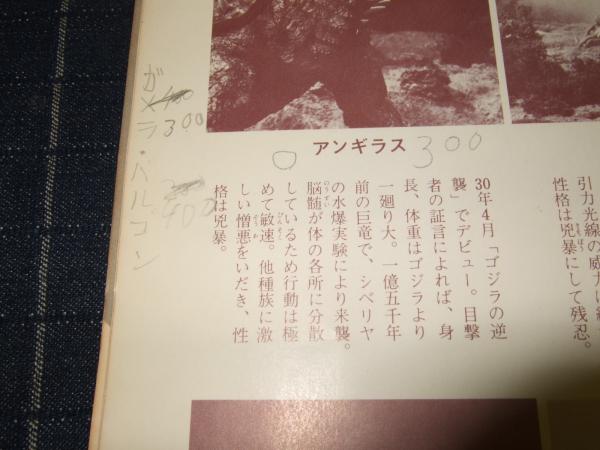 引力光線の威力に
性格は兇暴にして残忍。
きょうぼう
アンギラス 300
30年4月「ゴジラの逆
襲」でデビュー。目撃
者の証言によれば、身
長、体重はゴジラより
一廻り大。一億五千年
前の巨竜で、シベリヤ
の水爆実験により来襲。
脳髄が体の各所に分散
のうずい
しているため行動は極
めて敏速。他種族に激
しい憎悪をいだき、性
格は兇暴。
ガメラ・バルゴン
300
400